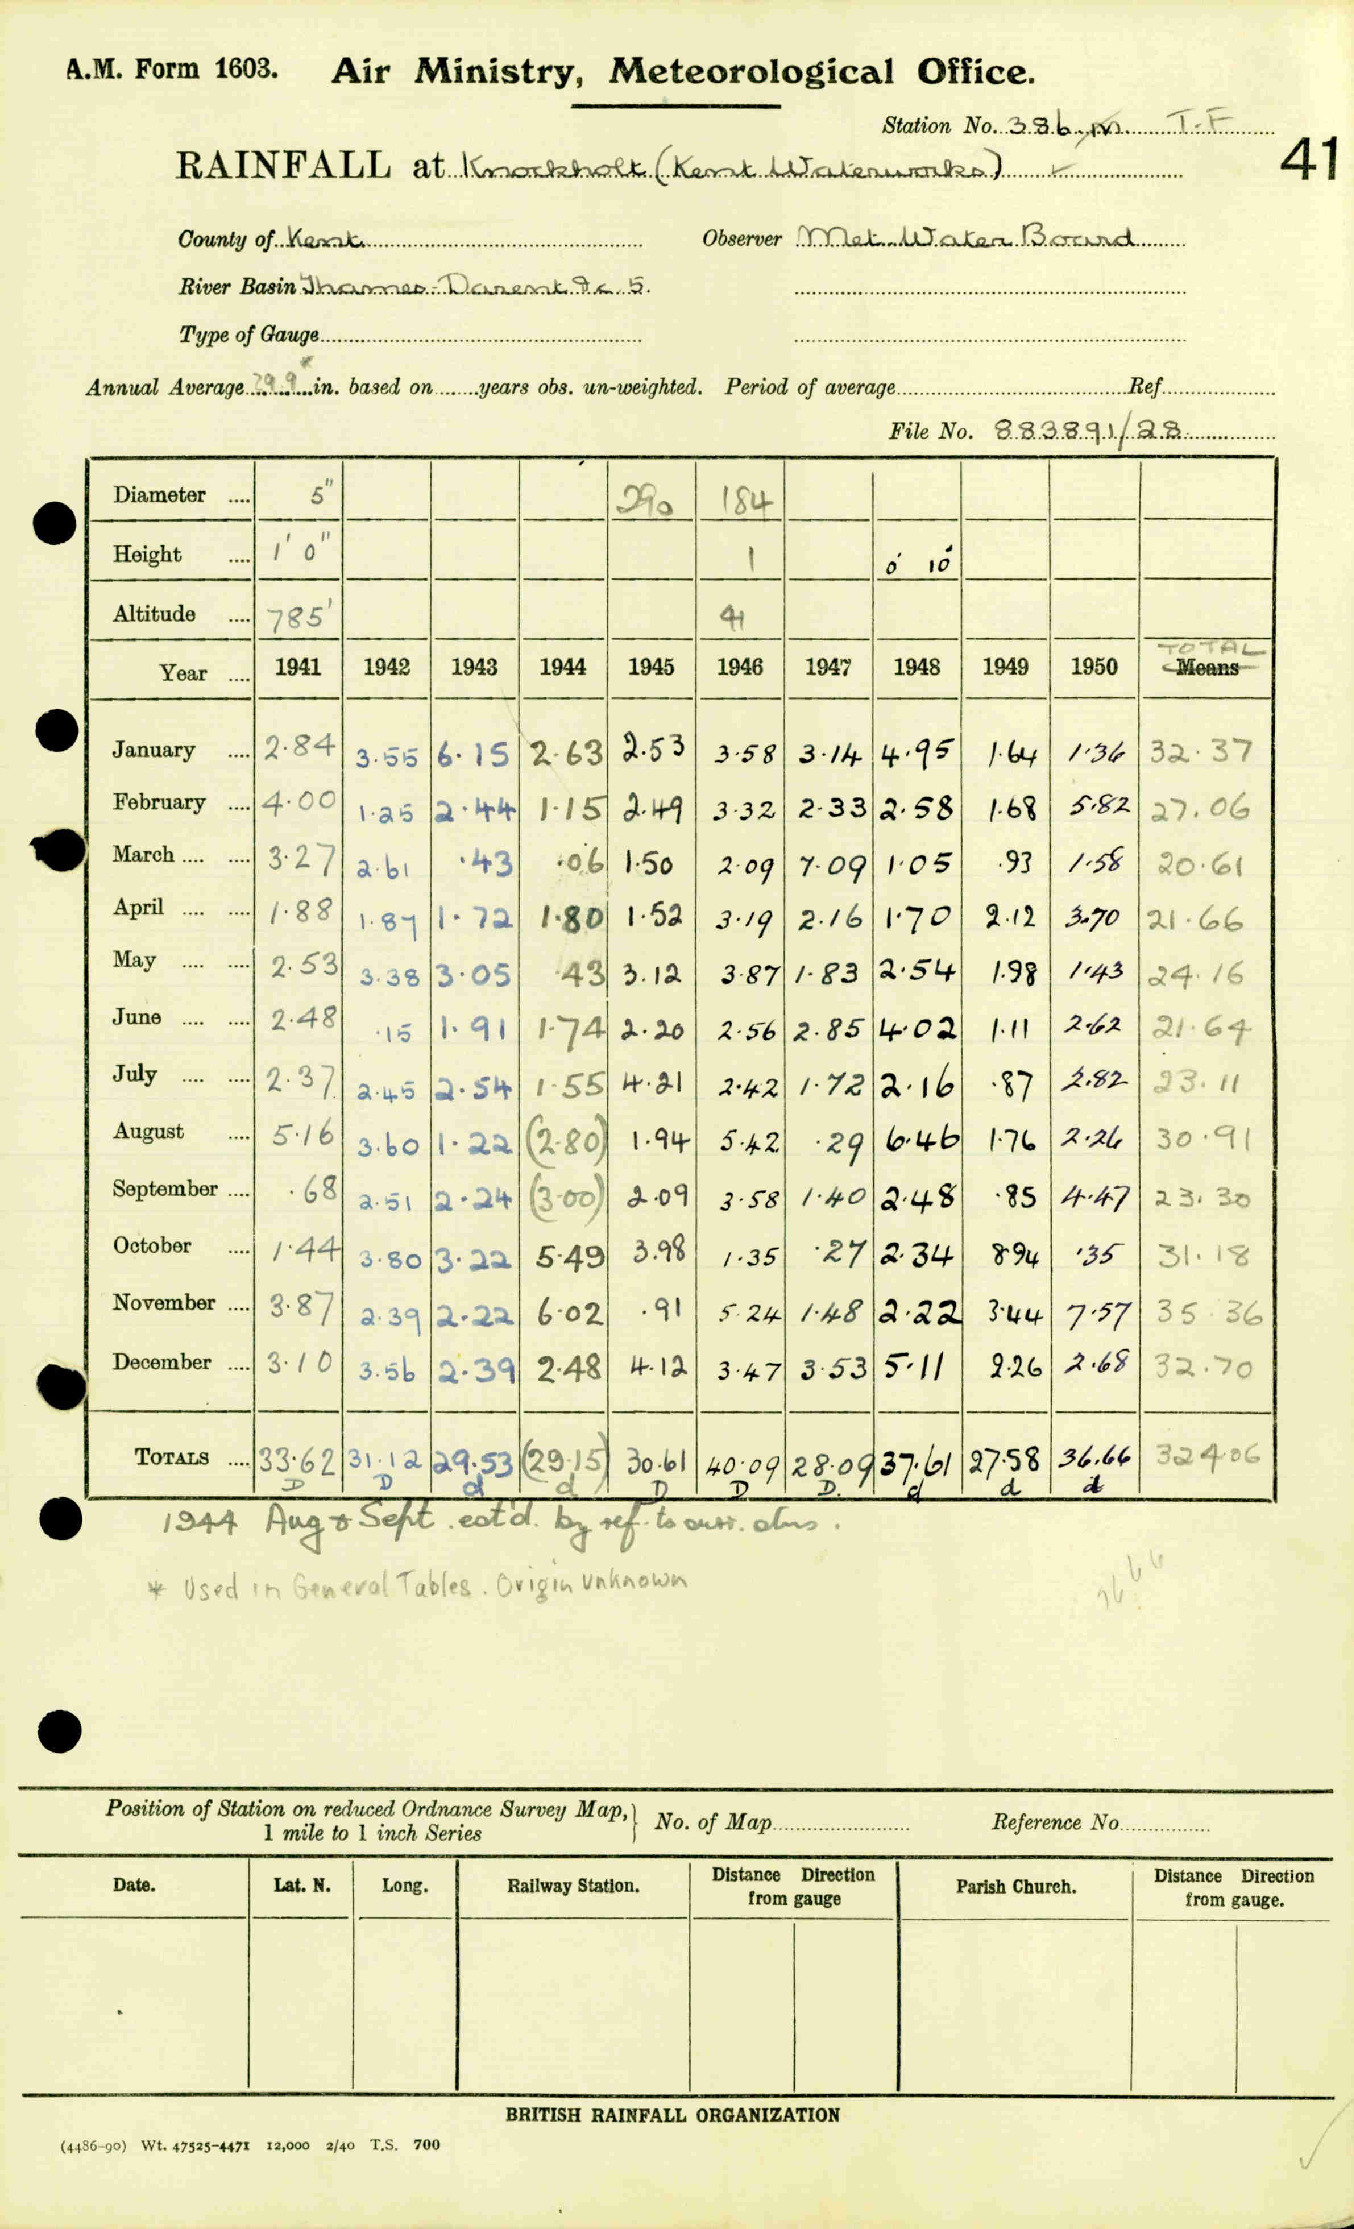 A.M. Form 1603. Air Ministry, Meteorological Office.
Station No. 386 T.F
41
RAINFALL at Knockholt (Kent Waterworks)
County of Kent Observer Met. Water Board
River Basin Thames-Darent &c 5.
Type of Gauge
Annual Average 29.9* in. based on years obs. un-weighted. Period of average Ref
File No. 883891/28
Diameter .... 5" 290 184
Height .... 1' 0" 1 0' 10"
Altitude .... 785' 41
Year .... 1941 1942 1943 1944 1945 1946 1947 1948 1949 1950 TOTAL Means
January .... 2.84 3.55 6.15 2.63 2.53 3.58 3.14 4.95 1.64 1.36 32.37
February .... 4.00 1.25 2.44 1.15 2.49 3.32 2.33 2.58 1.68 5.82 27.06
March .... .... 3.27 2.61 .43 .06 1.50 2.09 7.09 1.05 .93 1.58 20.61
April .... .... 1.88 1.87 1.72 1.80 1.52 3.19 2.16 1.70 2.12 3.70 21.66
May .... .... 2.53 3.38 3.05 .43 3.12 3.87 1.83 2.54 1.98 1.43 24.16
June .... .... 2.48 .15 1.91 1.74 2.20 2.56 2.85 4.02 1.11 2.62 21.64
July .... .... 2.37 2.45 2.54 1.55 4.21 2.42 1.72 2.16 .87 2.82 23.11
August .... 5.16 3.60 1.22 (2.80) 1.94 5.42 .29 6.46 1.76 2.26 30.91
September .... .68 2.51 2.24 (3.00) 2.09 3.58 1.40 2.48 .85 4.47 23.30
October .... 1.44 3.80 3.22 5.49 3.98 1.35 .27 2.34 8.94 .35 31.18
November .... 3.87 2.39 2.22 6.02 .91 5.24 1.48 2.22 3.44 7.57 35.36
December .... 3.10 3.56 2.39 2.48 4.12 3.47 3.53 5.11 2.26 2.68 32.70
TOTALS .... 33.62 31.12 29.53 (29.15) 30.61 40.09 28.09 37.61 27.58 36.66 324.06
D D d d D D D. d d d
1944 Aug & Sept. est'd. by ref. to surr. stns.
* Used in General Tables. Origin unknown
Position of Station on reduced Ordnance Survey Map,} No. of Map Reference No
1 mile to 1 inch Series
Date. Lat. N. Long. Railway Station. Distance Direction from gauge Parish Church. Distance Direction from gauge.
BRITISH RAINFALL ORGANIZATION
(4486-90) Wt. 47525-4471 12,000 2/40 T.S. 700